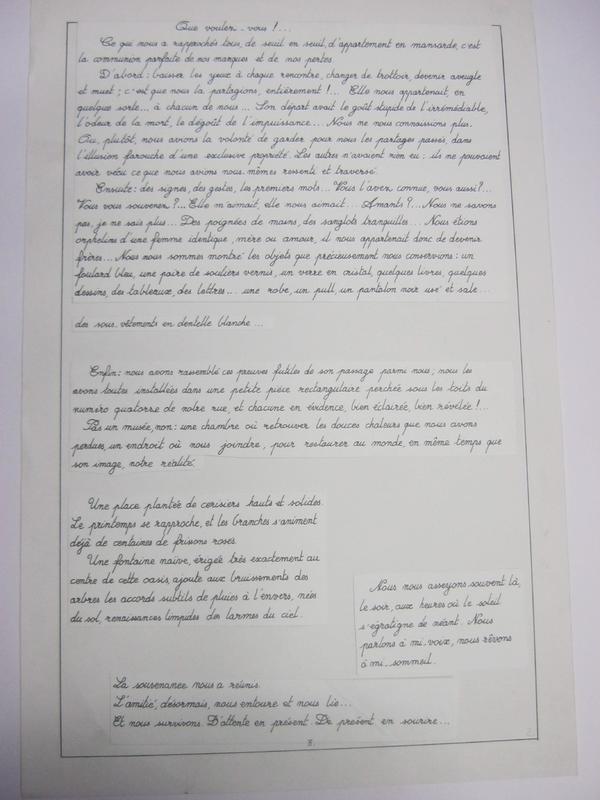 Que voulez-vous !...
Ce qui nous a rapprochés tous, de seuil en seuil, d'appartement en mansarde, c'est
la communion parfaite de nos marques et de nos pertes.
D'abord : baisser les yeux à chaque rencontre, changer de trottoir, devenir aveugle
et muet ; c'est que nous la partagions, entièrement !... Elle nous appartenait, en
quelque sorte... à chacun de nous... Son départ avait le goût stupide de l'irrémédiable,
l'odeur de la mort, le dégoût de l'impuissance... Nous ne nous connaissions plus.
Ou, plutôt, nous avions la volonté de garder pour nous les partages passés, dans
l'illusion farouche d'une exclusive propriété. Les autres n'avaient rien eu ; ils ne pouvaient
avoir vécu ce que nous avions nous-mêmes ressenti et traversé.
Ensuite : des signes, des gestes, les premiers mots... Vous l'avez connue, vous aussi ?...
Vous vous souvenez ?... Elle m'aimait, elle nous aimait... Amants ?... Nous ne savons
pas, je ne sais plus... Des poignées de mains, des sanglots tranquilles... Nous étions
orphelins d'une femme identique, mère ou amour, il nous appartenait donc de devenir
frères... Nous nous sommes montré les objets que précieusement nous conservions : un
foulard bleu, une paire de souliers vernis, un verre en cristal, quelques livres, quelques
dessins, des tableaux, des lettres... une robe, un pull, un pantalon noir usé et sale...
des sous-vêtements en dentelle blanche...
Enfin : nous avons rassemblé ces preuves futiles de son passage parmi nous ; nous les
avons toutes installées dans une petite pièce rectangulaire perchée sous les toits du
numéro quatorze de notre rue, et chacune en évidence, bien éclairée, bien révélée !...
Pas un musée, non : une chambre où retrouver les douces chaleurs que nous avons
perdues, un endroit où nous joindre, pour restaurer au monde, en même temps que
son image, notre réalité.
Une place plantée de cerisiers hauts et solides.
Le printemps se rapproche, et les branches s'animent
déjà de centaines de frissons roses.
Une fontaine naïve, érigée très exactement au
centre de cette oasis, ajoute aux bruissements des
arbres les accords subtils de pluies à l'envers, nées
du sol, renaissances limpides des larmes du ciel.
Nous nous asseyons souvent là,
le soir, aux heures où le soleil
s'égratigne de néant. Nous
parlons à mi-voix, nous rêvons
à mi-sommeil.
La souvenance nous a réunis.
L'amitié, désormais, nous entoure et nous lie...
Et nous survivons. D'attente en présent. De présent en sourire...
8.